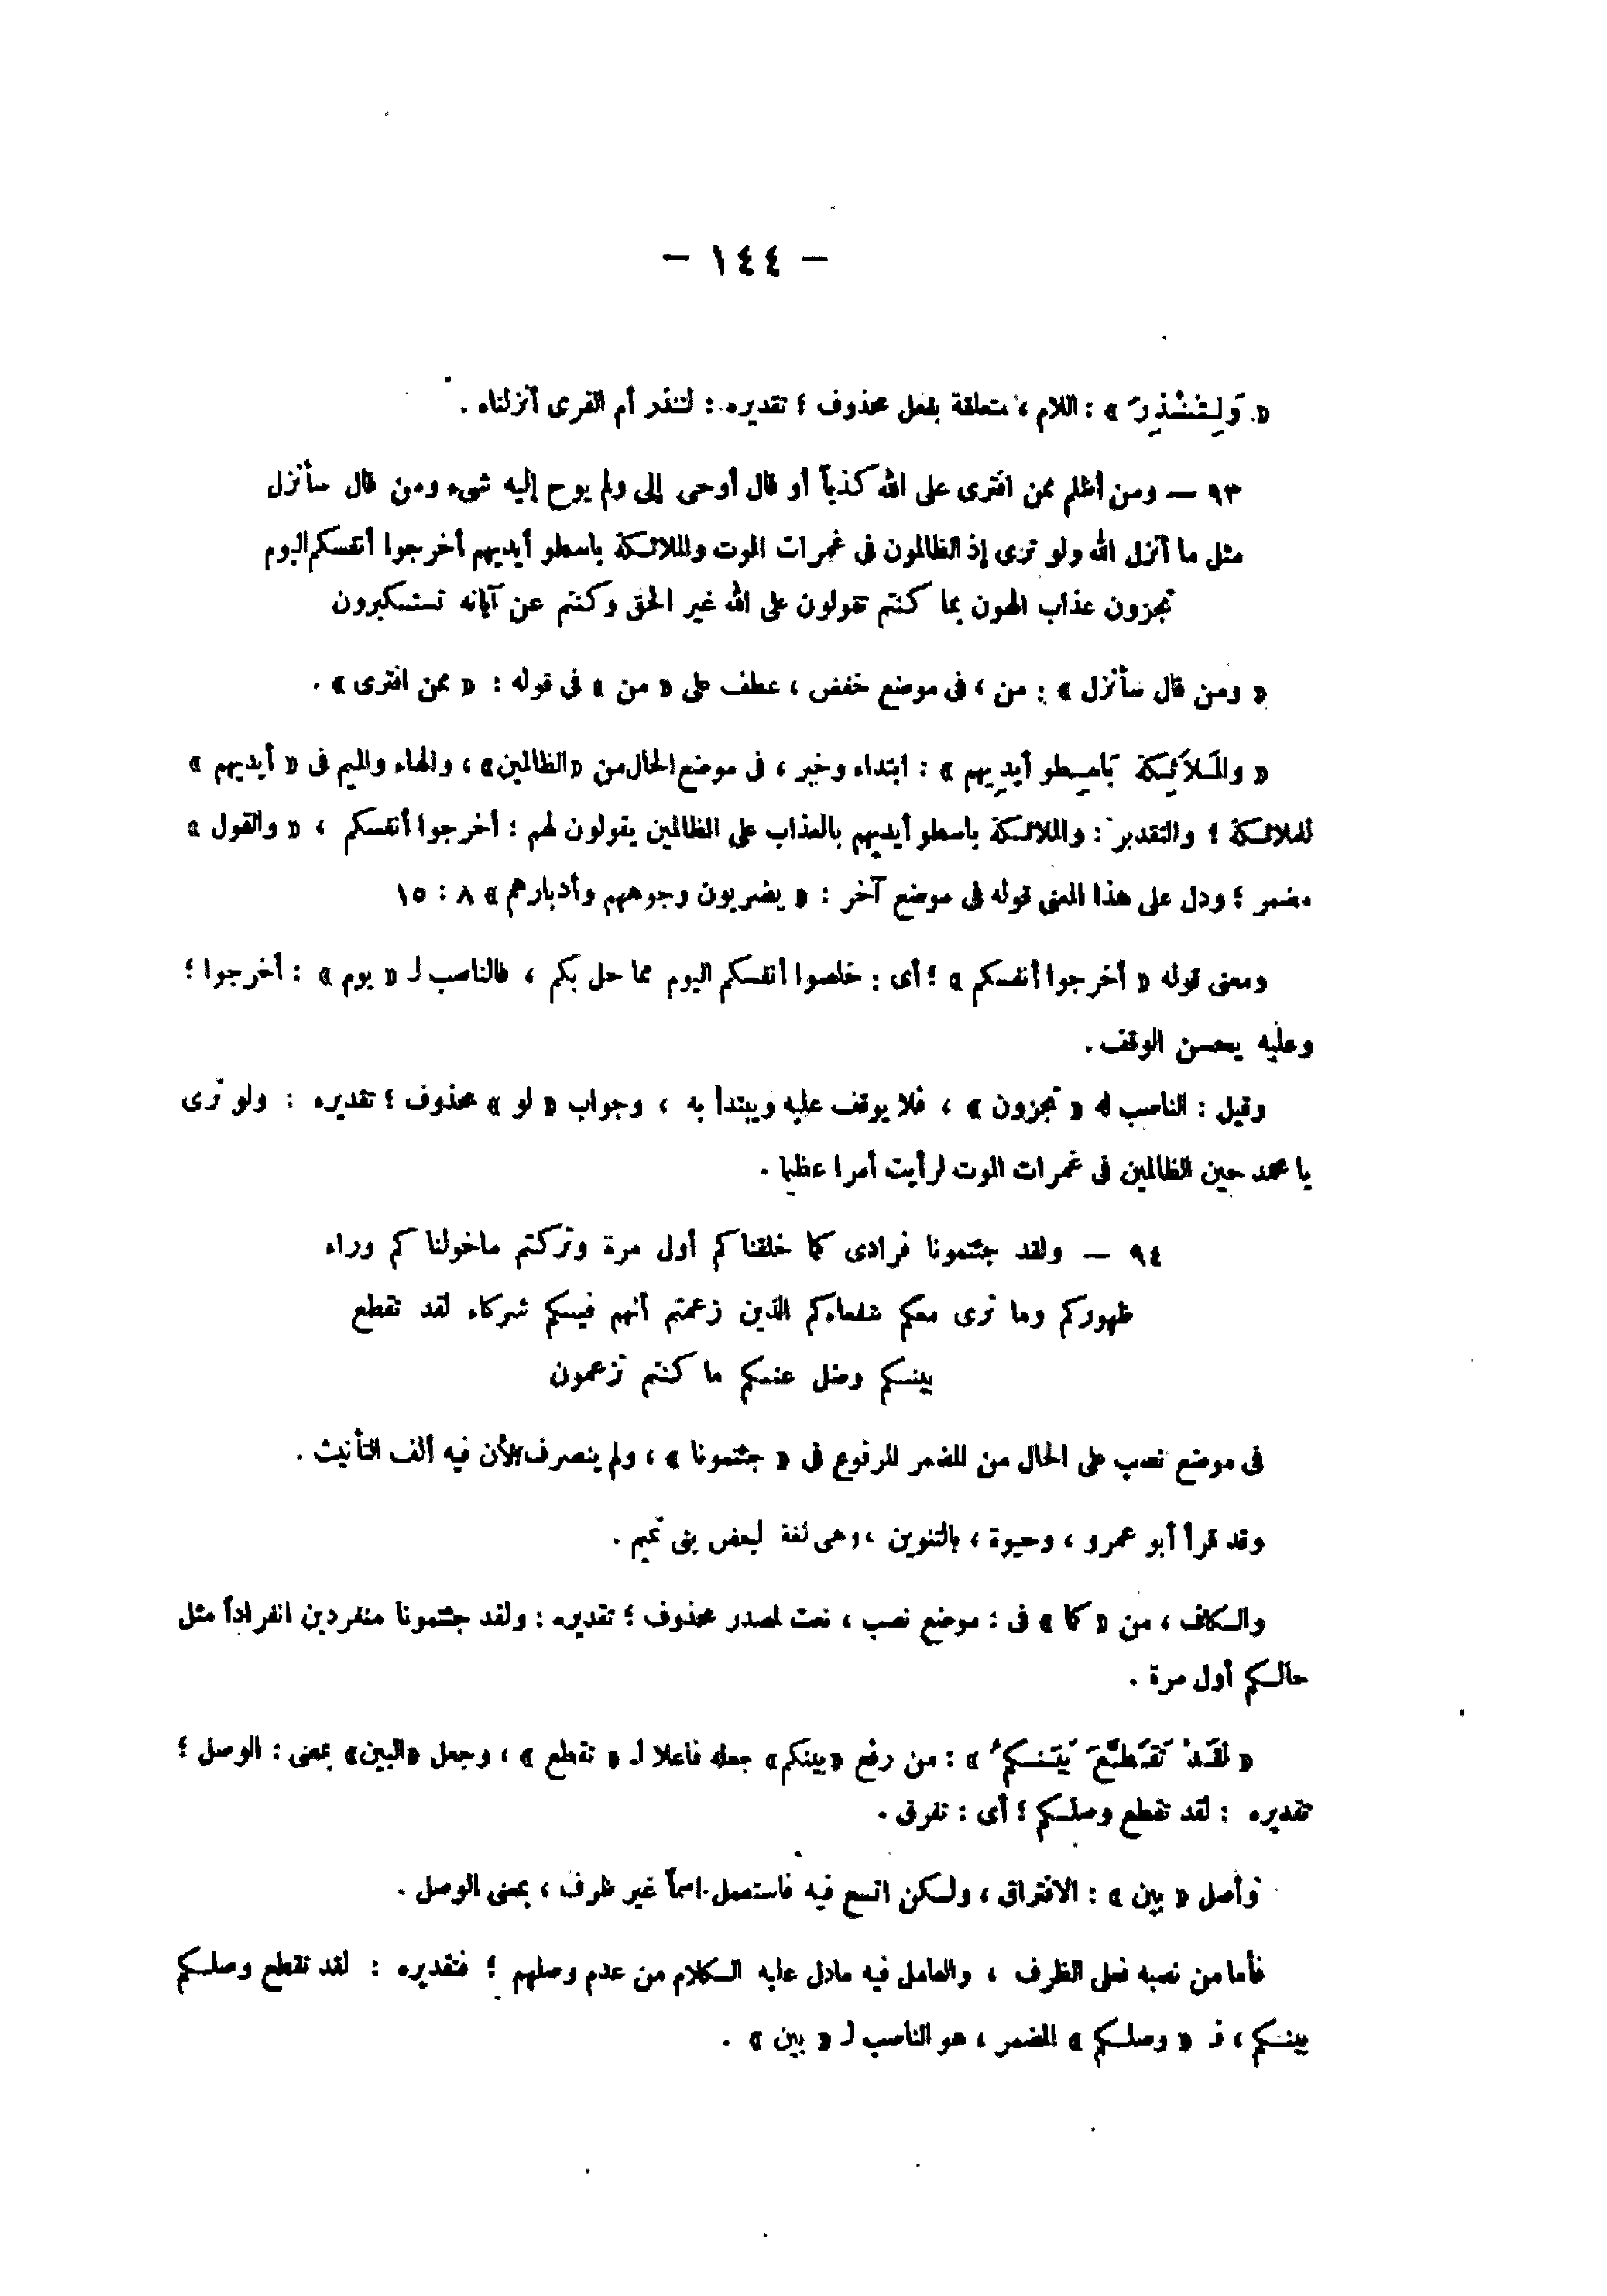 — ١٤٤ —
« وَلِتُنْذِرَ » : اللام ، متعلقة بفعل محذوف ؛ تقديره : لتنذر أم القرى أنزلناه .
٩٣ — ومن أظلم ممن افترى على الله كذباً أو قال أوحى إلى ولم يوح إليه شىء ومن قال سأنزل
مثل ما أنزل الله ولو ترى إذ الظالمون فى غمرات الموت والملائكة باسطو أيديهم أخرجوا أنفسكم اليوم
تجزون عذاب الهون بما كنتم تقولون على الله غير الحق وكنتم عن آياته تستكبرون
« ومن قال سأنزل » : من ، فى موضع خفض ، عطف على « من » فى قوله : « ممن افترى » .
« والمَلاَئِكة بَاسِطو أيدِيهم » : ابتداء وخبر ، فى موضع الحال من «الظالمين» ، والهاء والميم فى « أيديهم »
للملائكة ؛ والتقدير : والملائكة باسطو أيديهم بالعذاب على الظالمين يقولون لهم : أخرجوا أنفسكم ، « والقول »
مضمر ؛ ودل على هذا المعنى قوله فى موضع آخر : « يضربون وجوههم وأدبارهم » ٨ : ١٥
ومعنى قوله « أخرجوا أنفسكم » ؛ أى : خلصوا أنفسكم اليوم مما حل بكم ، فالناصب لـ « يوم » : أخرجوا ؛
وعليه يحسن الوقف .
وقيل : الناصب له « تجزون » ، فلا يوقف عليه ويبتدأ به ، وجواب « لو » محذوف ؛ تقديره : ولو ترى
يا محمد حين الظالمين فى غمرات الموت لرأيت أمرا عظيما .
٩٤ — ولقد جئتمونا فرادى كما خلقناكم أول مرة وتركتم ماخولناكم وراء
ظهوركم وما نرى معكم شفعاءكم الذين زعمتم أنهم فيكم شركاء لقد تقطع
بينكم وضل عنكم ما كنتم تزعمون
فى موضع نصب على الحال من المضمر المرفوع فى « جئتمونا » ، ولم ينصرف لأن فيه ألف التأنيث .
وقد قرأ أبو عمرو ، وحيوة ، بالتنوين ، وهى لغة لبعض بنى تميم .
والكاف ، من « كما » فى : موضع نصب ، نعت لمصدر محذوف ؛ تقديره : ولقد جئتمونا منفردين انفراداً مثل
حالكم أول مرة .
« لَقَدْ تَقَطَّعَ بَيْنَكُمْ » : من رفع «بينكم» جعله فاعلا لـ « تقطع » ، وجعل «البين» بمعنى : الوصل ؛
تقديره : لقد تقطع وصلكم ؛ أى : تفرق .
وأصل « بين » : الافتراق ، ولكن اتسع فيه فاستعمل اسماً غير ظرف ، بمعنى الوصل .
فأما من نصبه فعلى الظرف ، والعامل فيه مادل عليه الكلام من عدم وصلهم ؛ فتقديره : لقد تقطع وصلكم
بينكم ، فـ « وصلكم » المضمر ، هو الناصب لـ « بين » .